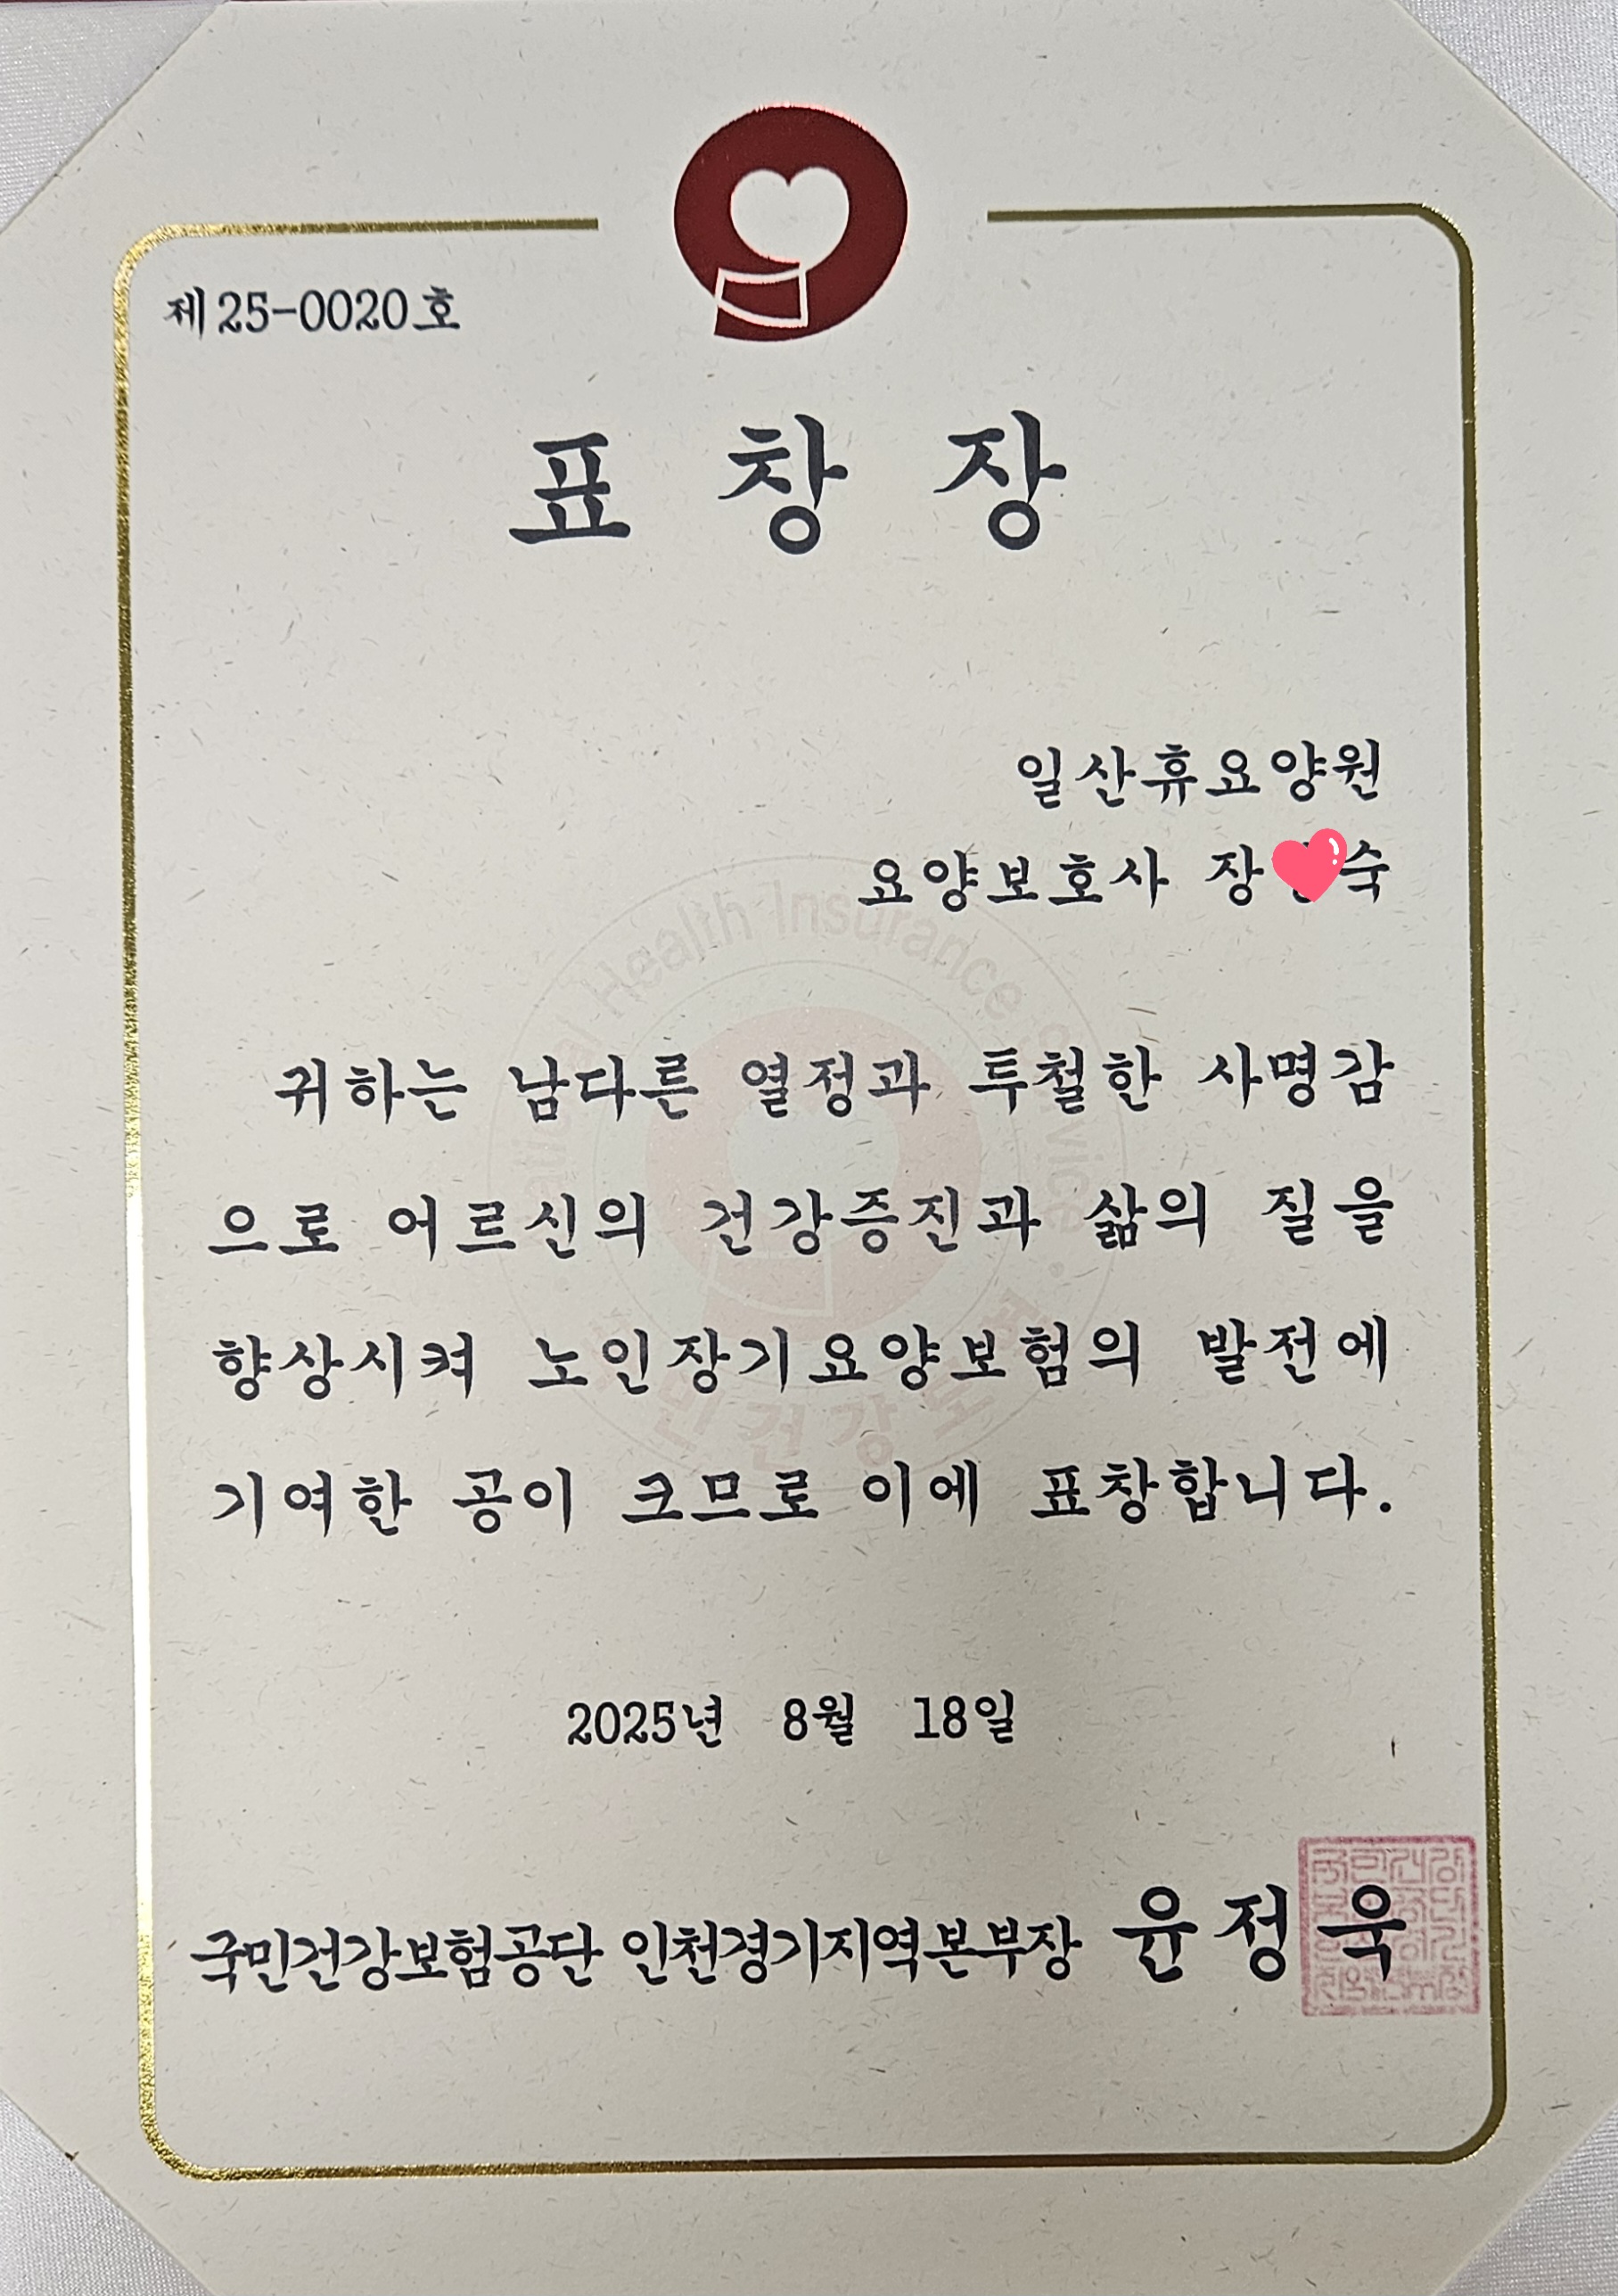 제25-0020호
표 창 장
일산휴요양원
요양보호사 장 숙
귀하는 남다른 열정과 투철한 사명감
으로 어르신의 건강증진과 삶의 질을
향상시켜 노인장기요양보험의 발전에
기여한 공이 크므로 이에 표창합니다.
2025년 8월 18일
국민건강보험공단 인천경기지역본부장 윤정욱
Health Insurance